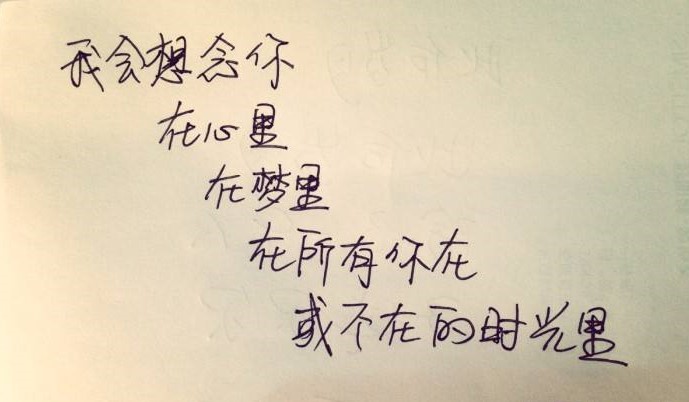 我会想念你
在心里
在梦里
在所有你在
或不在的时光里